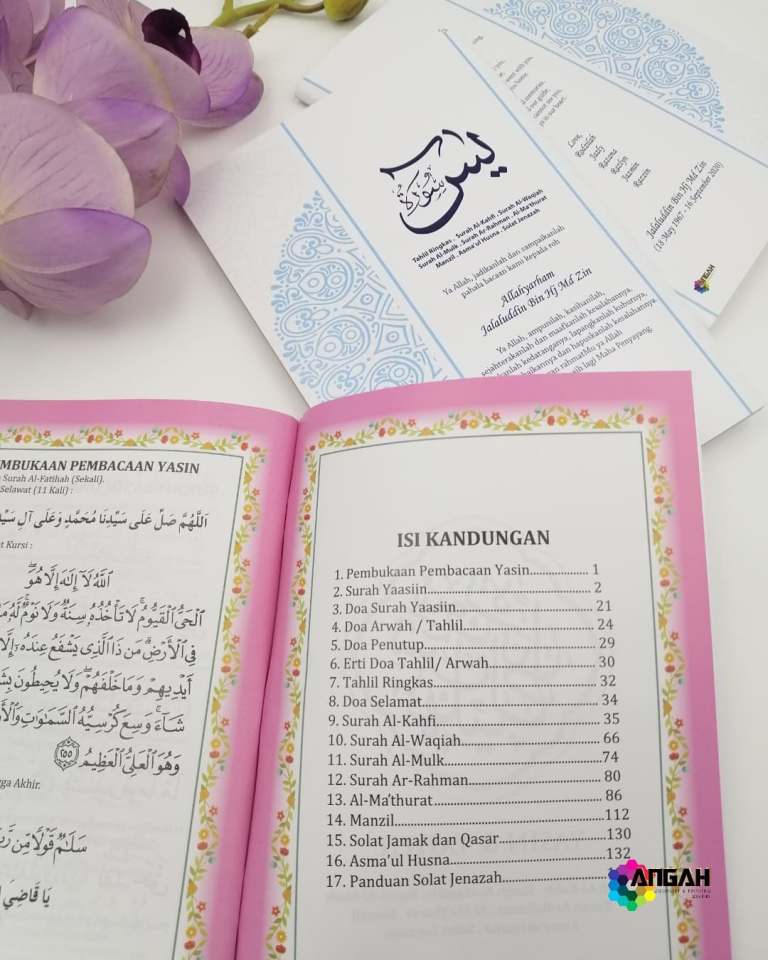 يس
سورة
Tahlil Ringkas . Surah Al-Kahfi . Surah Al-Waqiah
Surah Al-Mulk . Surah Ar-Rahman . Al-Ma'thurat
Manzil . Asma'ul Husna . Solat Jenazah
Ya Allah, jadikanlah dan sampaikanlah
pahala bacaan kami kepada roh
Allahyarham
Jalaluddin Bin Hj Md Zin
Ya Allah, ampunilah, kasihanilah,
sejahterakanlah dan maafkanlah kesalahannya,
kedatangannya, lapangkanlah kuburnya,
dan hapuskanlah kesalahannya
rahmatMu ya Allah
lagi Maha Penyayang.
Love,
Razana
Razlyn
Jazmin
Razzin
Jalaluddin Bin Hj Md Zin
(18 May 1967 - 16 September 2020)
ANGAH
MBUKAAN PEMBACAAN YASIN
Surah Al-Fatihah (Sekali).
Selawat (11 Kali) :
اَللّٰهُمَّ صَلِّ عَلَى سَيِّدِنَا مُحَمَّدٍ وَعَلَى آلِ
Kursi :
ٱللَّهُ لَآ إِلَٰهَ إِلَّا هُوَ
ٱلۡحَيُّ ٱلۡقَيُّومُۚ لَا تَأۡخُذُهُۥ سِنَةٌ وَلَا نَوۡمٌۚ لَّهُۥ
فِي ٱلۡأَرۡضِۗ مَن ذَا ٱلَّذِي يَشۡفَعُ عِندَهُۥٓ إِلَّا
أَيۡدِيهِمۡ وَمَا خَلۡفَهُمۡۖ وَلَا يُحِيطُونَ
شَآءَۚ وَسِعَ كُرۡسِيُّهُ ٱلسَّمَٰوَٰتِ
وَهُوَ ٱلۡعَلِيُّ ٱلۡعَظِيمُ ٢٥٥
Akhir.
سَلَٰمٌ قَوۡلًا مِّن
يَا قَاضِيَ
ISI KANDUNGAN
1. Pembukaan Pembacaan Yasin................ 1
2. Surah Yaasiin............................................ 2
3. Doa Surah Yaasiin.................................... 21
4. Doa Arwah / Tahlil................................... 24
5. Doa Penutup............................................. 29
6. Erti Doa Tahlil/ Arwah............................ 30
7. Tahlil Ringkas........................................... 32
8. Doa Selamat.............................................. 34
9. Surah Al-Kahfi.......................................... 35
10. Surah Al-Waqiah.................................... 66
11. Surah Al-Mulk........................................74
12. Surah Ar-Rahman.................................. 80
13. Al-Ma'thurat........................................... 86
14. Manzil.....................................................112
15. Solat Jamak dan Qasar...........................130
16. Asma'ul Husna.......................................132
17. Panduan Solat Jenazah..........................
ANGAH